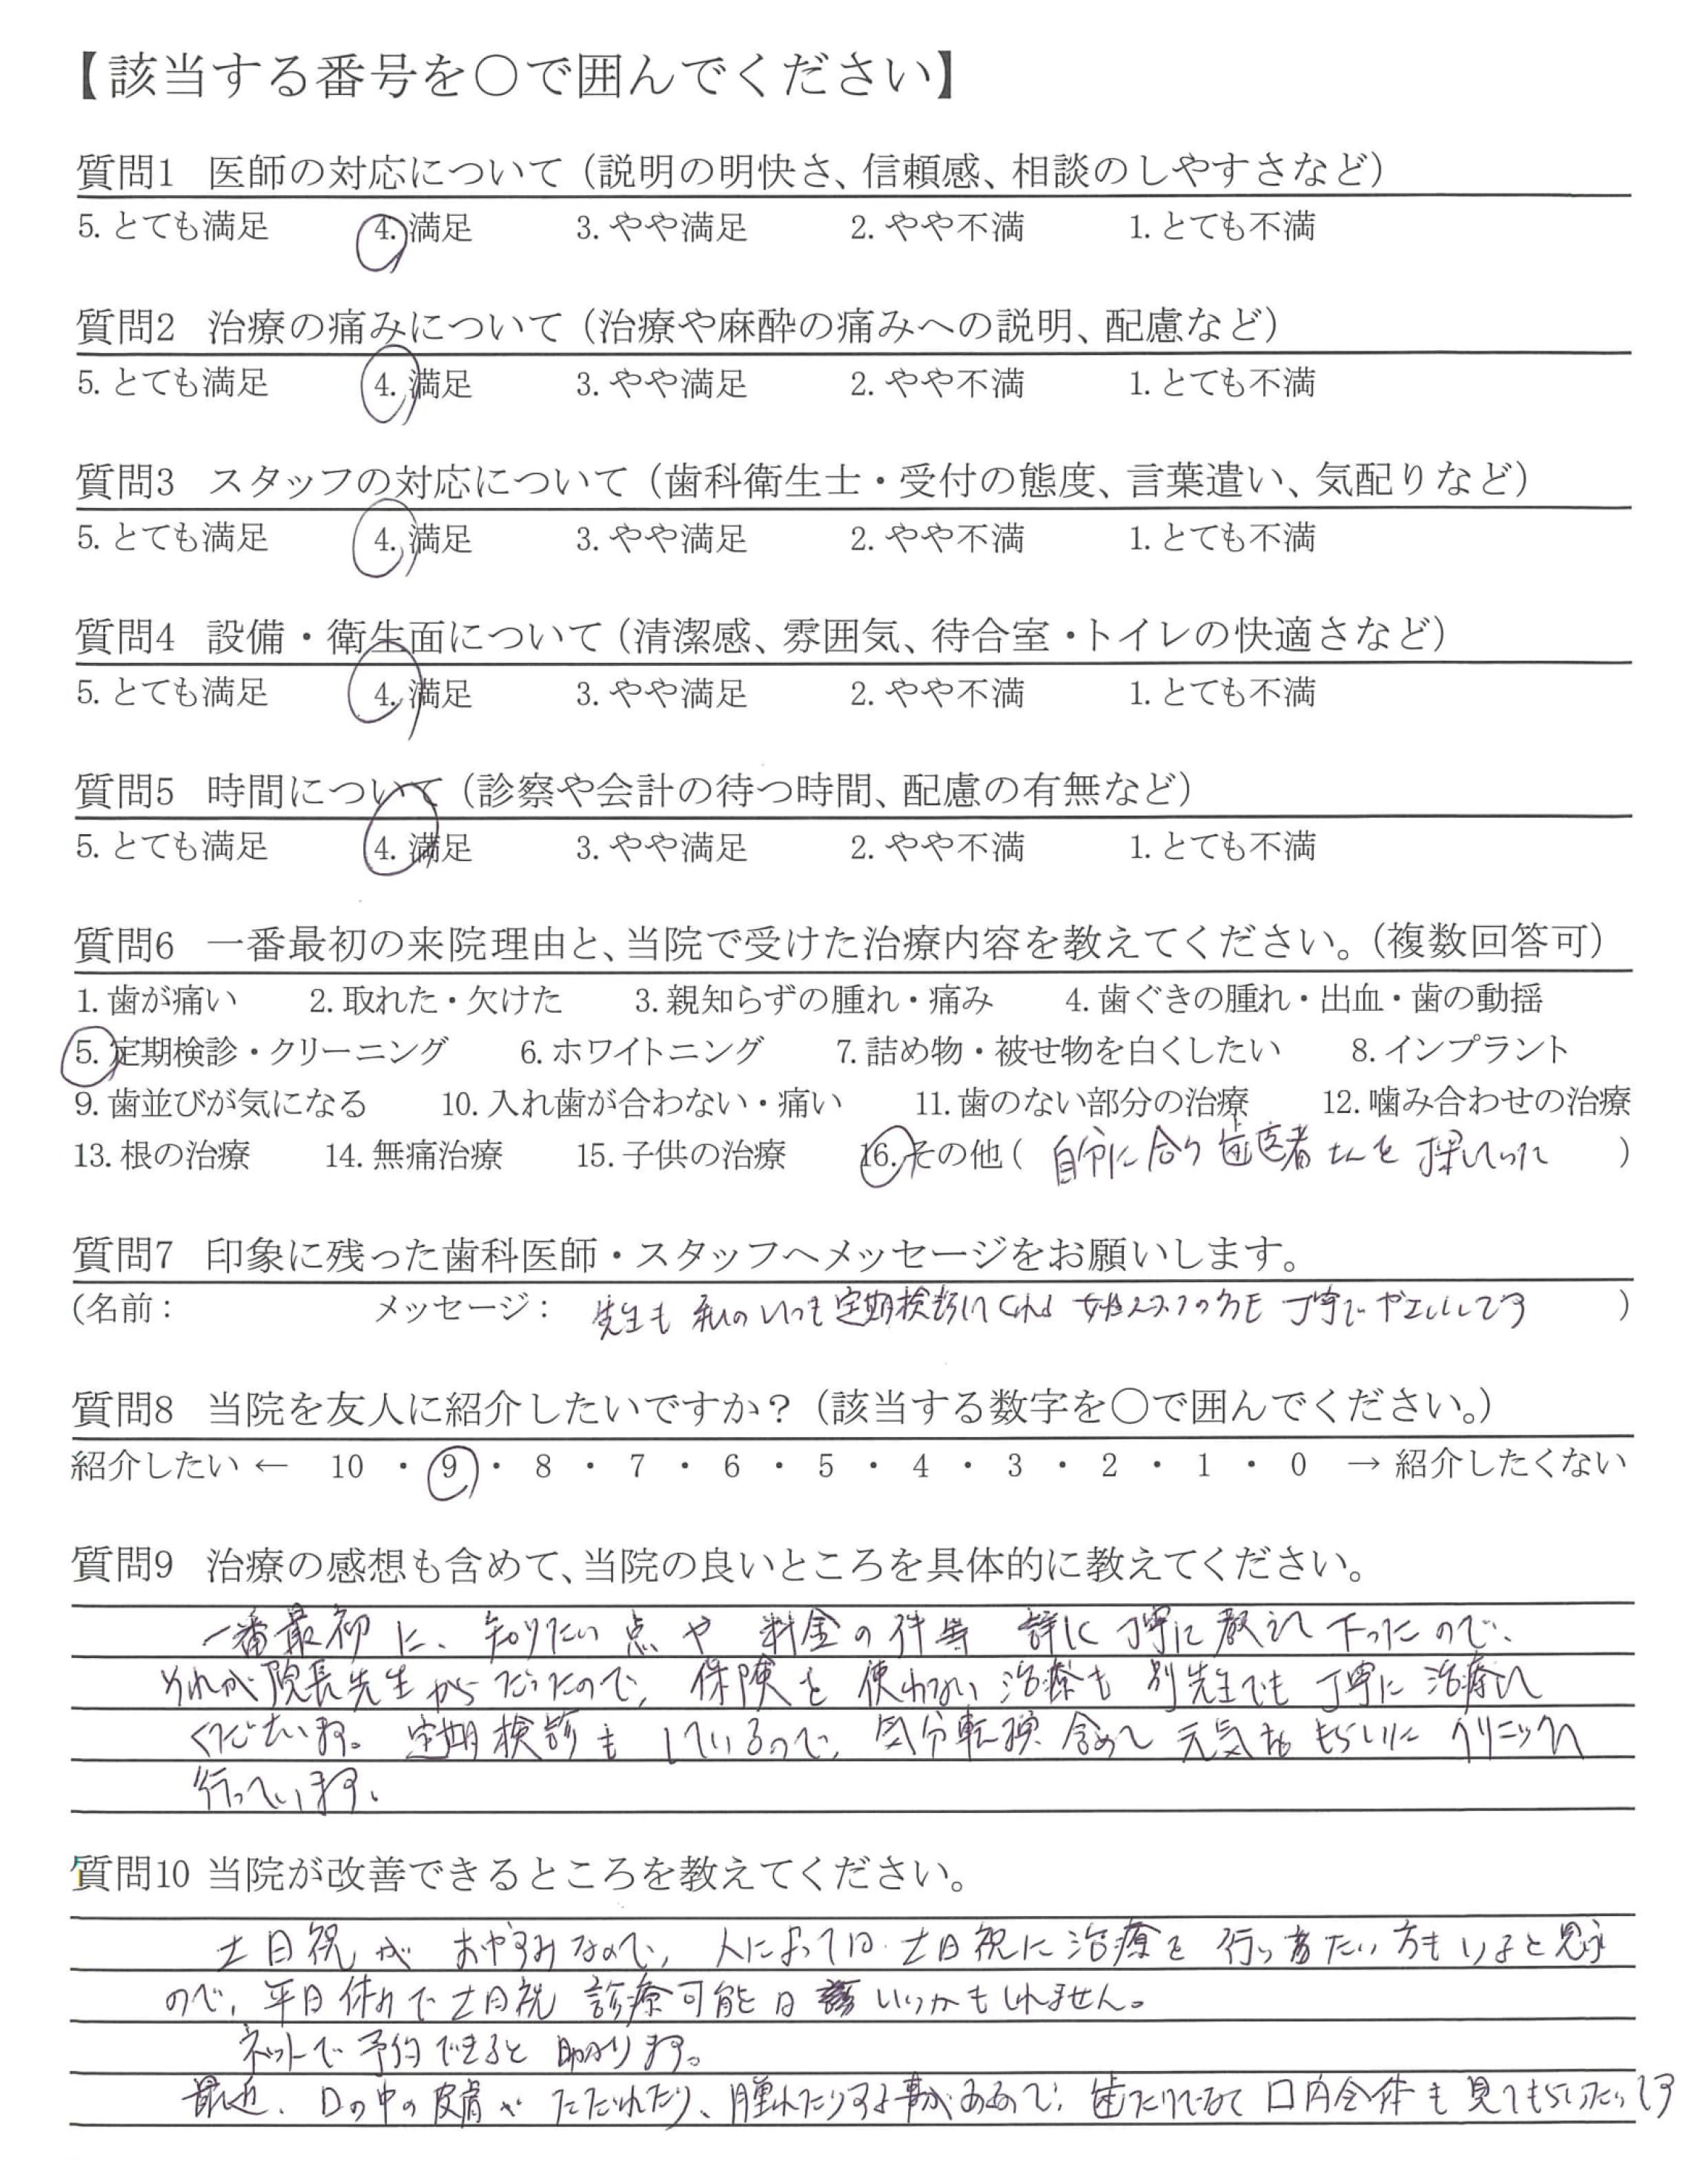 【該当する番号を○で囲んでください】
質問1 医師の対応について（説明の明快さ、信頼感、相談のしやすさなど）
5. とても満足 4. 満足 3. やや満足 2. やや不満 1. とても不満
質問2 治療の痛みについて（治療や麻酔の痛みへの説明、配慮など）
5. とても満足 4. 満足 3. やや満足 2. やや不満 1. とても不満
質問3 スタッフの対応について（歯科衛生士・受付の態度、言葉遣い、気配りなど）
5. とても満足 4. 満足 3. やや満足 2. やや不満 1. とても不満
質問4 設備・衛生面について（清潔感、雰囲気、待合室・トイレの快適さなど）
5. とても満足 4. 満足 3. やや満足 2. やや不満 1. とても不満
質問5 時間について（診察や会計の待つ時間、配慮の有無など）
5. とても満足 4. 満足 3. やや満足 2. やや不満 1. とても不満
質問6 一番最初の来院理由と、当院で受けた治療内容を教えてください。（複数回答可）
1. 歯が痛い 2. 取れた・欠けた 3. 親知らずの腫れ・痛み 4. 歯ぐきの腫れ・出血・歯の動揺
5. 定期検診・クリーニング 6. ホワイトニング 7. 詰め物・被せ物を白くしたい 8. インプラント
9. 歯並びが気になる 10. 入れ歯が合わない・痛い 11. 歯のない部分の治療 12. 噛み合わせの治療
13. 根の治療 14. 無痛治療 15. 子供の治療 16. その他（自分に合う歯医者さんを探していた）
質問7 印象に残った歯科医師・スタッフへメッセージをお願いします。
（名前： メッセージ： 先生も私のいつも定期検診してくれる女性スタッフの方も丁寧でやさしいです）
質問8 当院を友人に紹介したいですか？（該当する数字を○で囲んでください。）
紹介したい ← 10 ・ 9 ・ 8 ・ 7 ・ 6 ・ 5 ・ 4 ・ 3 ・ 2 ・ 1 ・ 0 → 紹介したくない
質問9 治療の感想も含めて、当院の良いところを具体的に教えてください。
一番最初に、知りたい点や料金の件等 詳しく丁寧に教えて下ったので、
それが院長先生からだったので、保険を使わない治療も別先生でも丁寧に治療して
くださいます。定期検診もしているので、気分転換含めて元気をもらいにクリニックへ
行っています。
質問10 当院が改善できるところを教えてください。
土日祝がおやすみなので、人によっては土日祝に治療を行い たい方もいると思う
ので、平日休みで土日祝診療可能日 いいかもしれません。
ネットで予約できると助かります。
最近、口の中の皮膚がただれたり、腫れたりする事があるので、歯だけでなく口内全体も見てもらいたいです